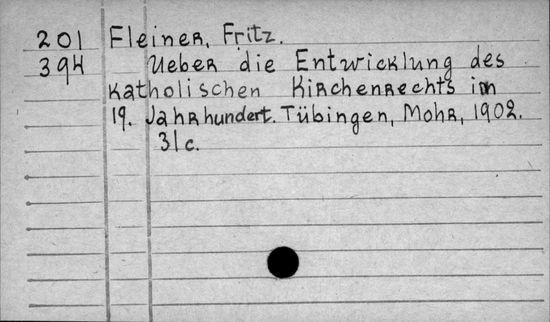 201 Fleiner, Fritz.
394 Ueber die Entwicklung des
katholischen Kirchenrechts im
19. Jahrhundert. Tübingen, Mohr, 1902.
31 c.